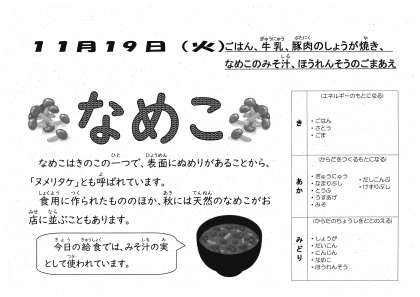 11月19日（火）ごはん、牛乳、豚肉のしょうが焼き、
なめこのみそ汁、ほうれんそうのごまあえ
なめこ
なめこはきのこの一つで、表面にぬめりがあることから、
「ヌメリタケ」とも呼ばれています。
食用に作られたもののほか、秋には天然のなめこがお
店に並ぶこともあります。
今日の給食では、みそ汁の実
として使われています。
き
(エネルギーのもとになる)
・ごはん
・さとう
・ごま
あか
(からだをつくるもとになる)
・ぎゅうにゅう
・なまりぶし
・とうふ
・うすあげ
・みそ
・だしこんぶ
・けずりぶし
みどり
(からだのちょうしをととのえる)
・しょうが
・だいこん
・にんじん
・なめこ
・ほうれんそう